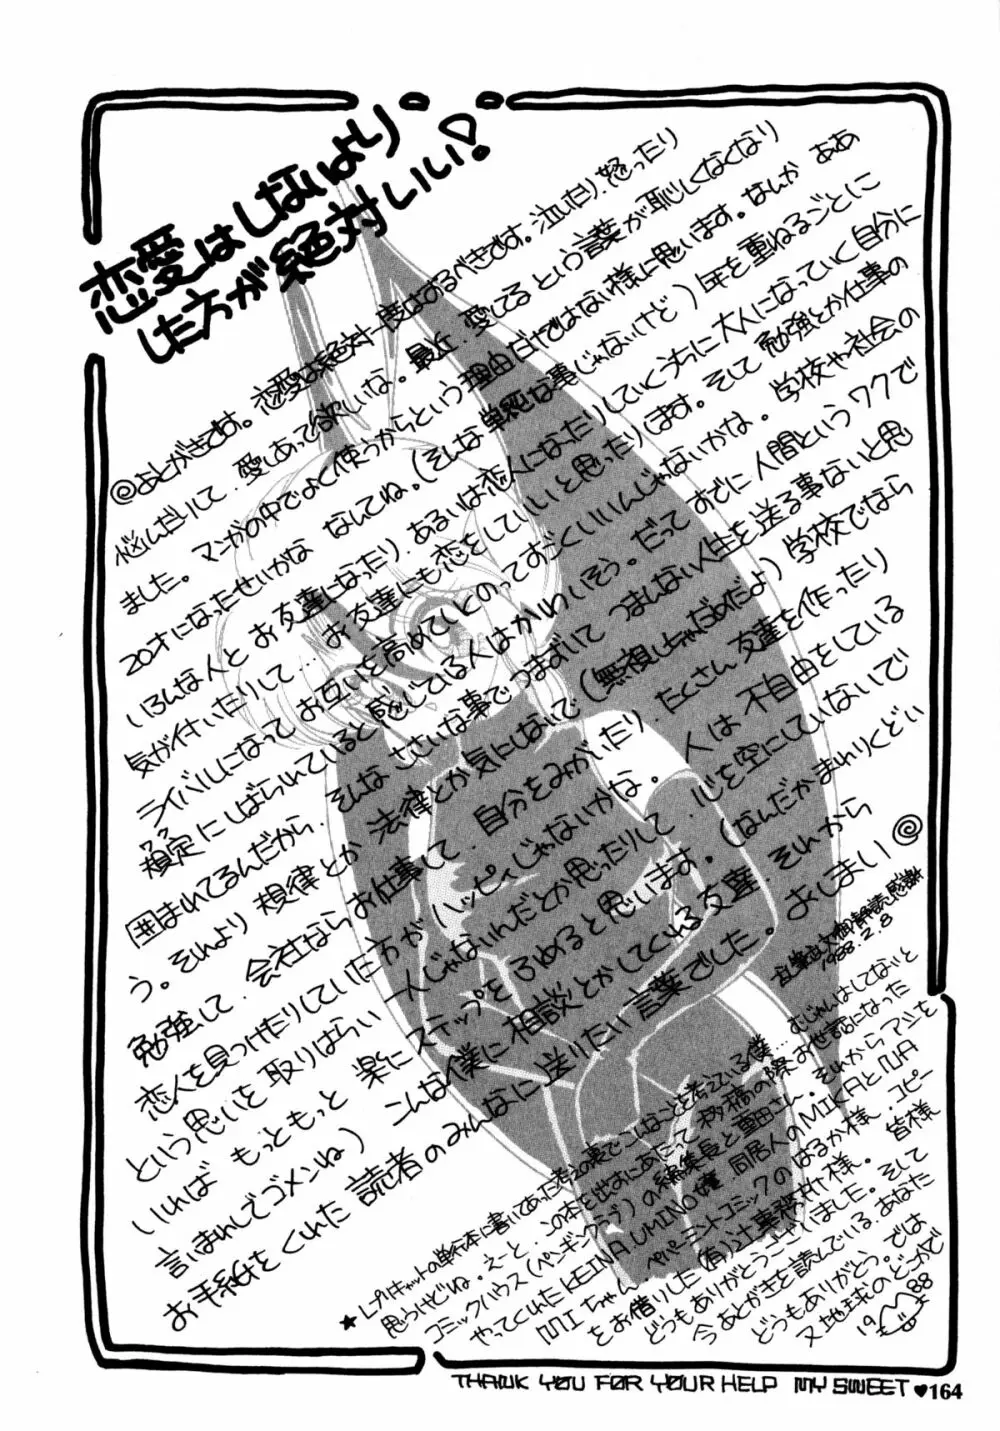 恋愛はしないより
した方が絶対いい!
@あとがきです。恋愛は絶対一度はするべきです。泣いたり、怒ったり
悩んだりして、愛しあって欲しいな。最近、愛してるという言葉が恥しくなくなり
ました。マンガの中でよく使うからという理由だけではない様に思います。なんか ああ
20才になったせいかな なんてね。(そんな単純な事じゃないけど)年を重ねるごとに
いろんな人とお友達になったり、あるいは恋人になったりしていくうちに大人になっていく自分に
気が付いたりして…お友達にも恋をしていいと思ったりします。そして勉強とか仕事の
ライバルになってお互いを高めていくのってすごくいいんじゃないかな。学校や社会の
規定にしばられていると感じている人はかわいそう。だってすでに人間というワクで
囲まれてるんだから、そんなささいな事でつまずいてつまんない人生を送る事ないと思
う。それより規律とか法律とか気にしないで(無視しちゃだめだよ)学校でなら
勉強して、会社ならお仕事して、自分をみがいたり、たくさん友達を作ったり
恋人を見つけたりしていた方がハッピィじゃないかな。人は不自由をしている
という思いを取りはらい 一人じゃないんだとか思ったりして、心を空にしていないで
いれば もっともっと楽にステップをふめると思います。(なんだかまわりくどい
言いまわしでゴメンね)こんな僕に相談とかしてくれる友達、それから
お手紙をくれた読者のみんなに送りたい言葉でした。 おしまい@
1988.2.8
★レプリキャットの単行本に書いてあった考えの事でこんなことを考えている僕…むじゅんはしてないと
思うけどね。えーと、この本を出すにあたって移稿の際お世話になった
コミックハウス(ペンギンクラブ)の編集長と重田さん。それからアシを
やってくれたKEINA UMINO嬢、同居人のMIKAとNA
MIちゃん。ペパーミントコミックのはるか様、コピー
をお借りした(有)辻事務所様。皆様
どうもありがとうございました。そして
今あとがきを読んでいる、あなた
どうもありがとう。では
又地球のどこかで
1988
THANK YOU FOR YOUR HELP MY SWEET ♥164